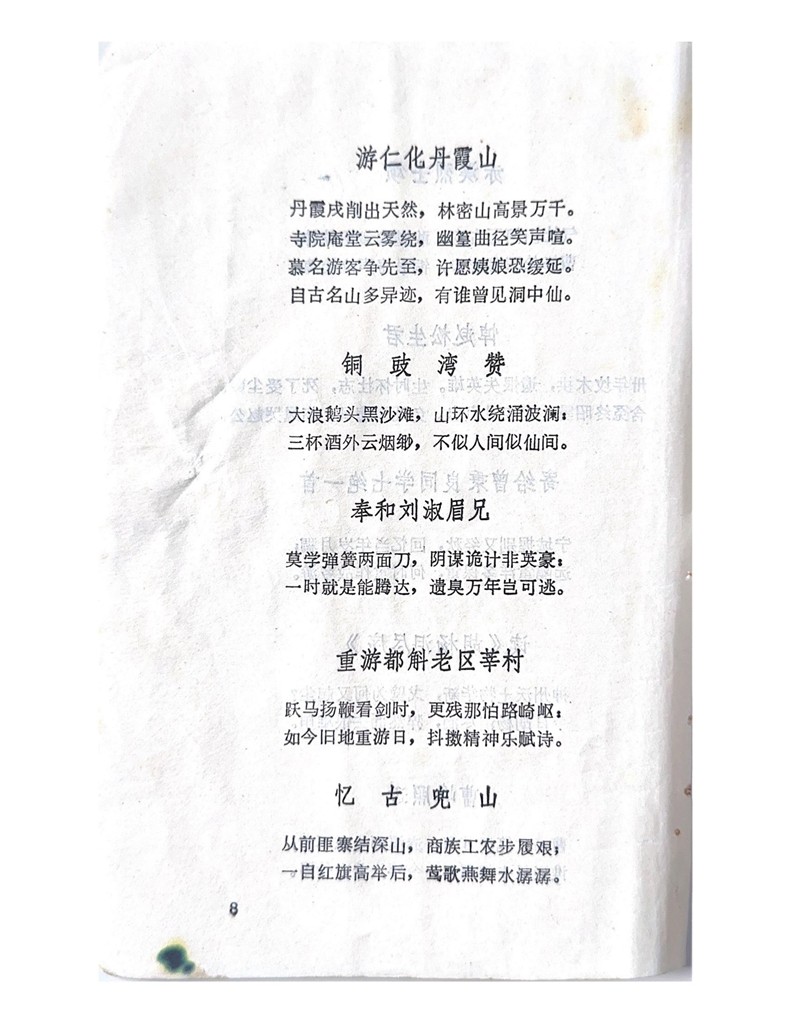 游仁化丹霞山
丹霞戌削出天然，林密山高景万千。
寺院庵堂云雾绕，幽篁曲径笑声喧。
慕名游客争先至，许愿姨娘恐缓延。
自古名山多异迹，有谁曾见洞中仙。
铜豉湾赞
大浪鹅头黑沙滩，山环水绕涌波澜；
三杯酒外云烟缈，不似人间似仙间。
奉和刘淑眉兄
莫学弹簧两面刀，阴谋诡计非英豪；
一时就是能腾达，遗臭万年岂可逃。
重游都斛老区莘村
跃马扬鞭看剑时，更残那怕路崎岖；
如今旧地重游日，抖擞精神乐赋诗。
忆古兜山
从前匪寨结深山，商族工农步履艰，
一自红旗高举后，莺歌燕舞水潺潺。
8